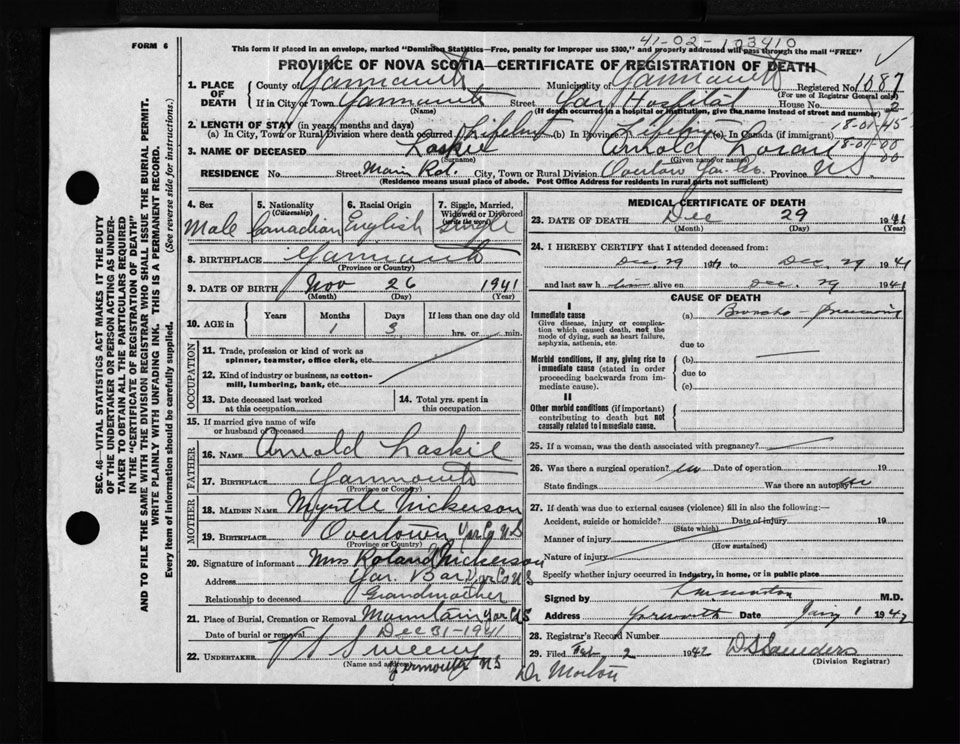 41-02-103410
FORM 6
This form if placed in an envelope, marked "Dominion Statistics—Free, penalty for improper use $300," and properly addressed will pass through the mail "FREE"
PROVINCE OF NOVA SCOTIA—CERTIFICATE OF REGISTRATION OF DEATH
1. PLACE OF DEATH County of Yarmouth Municipality of Yarmouth Registered No. 1087
(For use of Registrar General only)
If in City or Town Yarmouth Street Yar. Hospital House No. 2
(Name) (If death occurred in a hospital or institution, give the name instead of street and number)
2. LENGTH OF STAY (in years, months and days) 8-01-45
(a) In City, Town or Rural Division where death occurred Lifetime (b) In Province Lifetime (c) In Canada (if immigrant) 18-01-00
3. NAME OF DECEASED Laskie Arnold Loran 00
(Surname) (Given name or names)
RESIDENCE No. Street Main Rd. City, Town or Rural Division Overton Yar. Co. Province N.S.
(Residence means usual place of abode. Post Office Address for residents in rural parts not sufficient)
4. Sex Male
5. Nationality (Citizenship) Canadian
6. Racial Origin English
7. Single, Married, Widowed or Divorced (write the word) Single
8. BIRTHPLACE Yarmouth
(Province or Country)
9. DATE OF BIRTH Nov 26 1941
(Month) (Day) (Year)
10. AGE in Years Months Days If less than one day old
1 3 hrs. or min.
OCCUPATION
11. Trade, profession or kind of work as spinner, teamster, office clerk, etc.
12. Kind of industry or business, as cotton-mill, lumbering, bank, etc.
13. Date deceased last worked at this occupation
14. Total yrs. spent in this occupation
15. If married give name of wife or husband of deceased
FATHER
16. NAME Arnold Laskie
17. BIRTHPLACE Yarmouth
(Province or Country)
MOTHER
18. MAIDEN NAME Myrtle Nickerson
19. BIRTHPLACE Overtown Yar Co N.S
(Province or Country)
20. Signature of informant Mrs Roland Nickerson
Address Yar. Bar Yar Co N S
Relationship to deceased Grandmother
21. Place of Burial, Cremation or Removal Mountain Yar Co N S
Date of burial or removal Dec 31-1941
22. UNDERTAKER Sweeny
(Name and address) Yarmouth N S
MEDICAL CERTIFICATE OF DEATH
23. DATE OF DEATH Dec 29 1941
(Month) (Day) (Year)
24. I HEREBY CERTIFY that I attended deceased from:
Dec. 29 1941 to Dec. 29 1941
and last saw him alive on Dec. 29 1941
CAUSE OF DEATH
I
Immediate cause (a) Broncho-Pneumonia
Give disease, injury or complication which caused death, not the mode of dying, such as heart failure, asphyxia, asthenia, etc.
due to
Morbid conditions, if any, giving rise to immediate cause (stated in order proceeding backwards from immediate cause). (b)
due to
(c)
II
Other morbid conditions (if important) contributing to death but not causally related to immediate cause.
25. If a woman, was the death associated with pregnancy?
26. Was there a surgical operation? no Date of operation 19
State findings Was there an autopsy? no
27. If death was due to external causes (violence) fill in also the following:—
Accident, suicide or homicide? Date of injury 19
(State which)
Manner of injury
(How sustained)
Nature of injury
Specify whether injury occurred in industry, in home, or in public place
Signed by M.D.
Address Yarmouth Date Jany 1 1942
28. Registrar's Record Number
29. Filed Feb 2 1942 D S Saunders
(Division Registrar)
Dr Morton
SEC. 46—VITAL STATISTICS ACT MAKES IT THE DUTY
OF THE UNDERTAKER OR PERSON ACTING AS UNDER-
TAKER TO OBTAIN ALL THE PARTICULARS REQUIRED
IN THE "CERTIFICATE OF REGISTRATION OF DEATH"
AND TO FILE THE SAME WITH THE DIVISION REGISTRAR WHO SHALL ISSUE THE BURIAL PERMIT.
WRITE PLAINLY WITH UNFADING INK. THIS IS A PERMANENT RECORD.
Every item of Information should be carefully supplied. (See reverse side for instructions.)